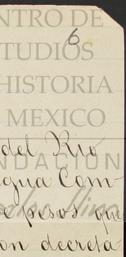 NTRO DE
6
TUDIOS
HISTORIA
MEXICO
del Rio
NDACIÓN
agua Com-
e pesos que
on decreta